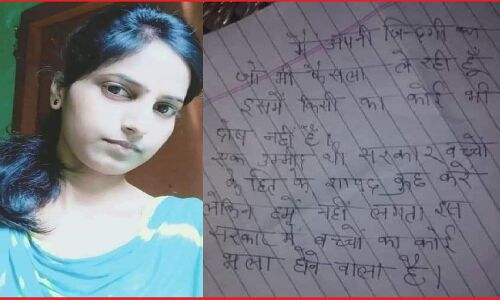 मैं अपनी जिन्दगी का
जो भी फैसला ले रही हूँ
इसमें किसी का कोई भी
दोष नहीं है।
एक उम्मीद थी सरकार बच्चो
के हित के शायद कुछ करे
लेकिन हमें नहीं लगता इस
सरकार में बच्चों का कोई
भला होने वाला है।